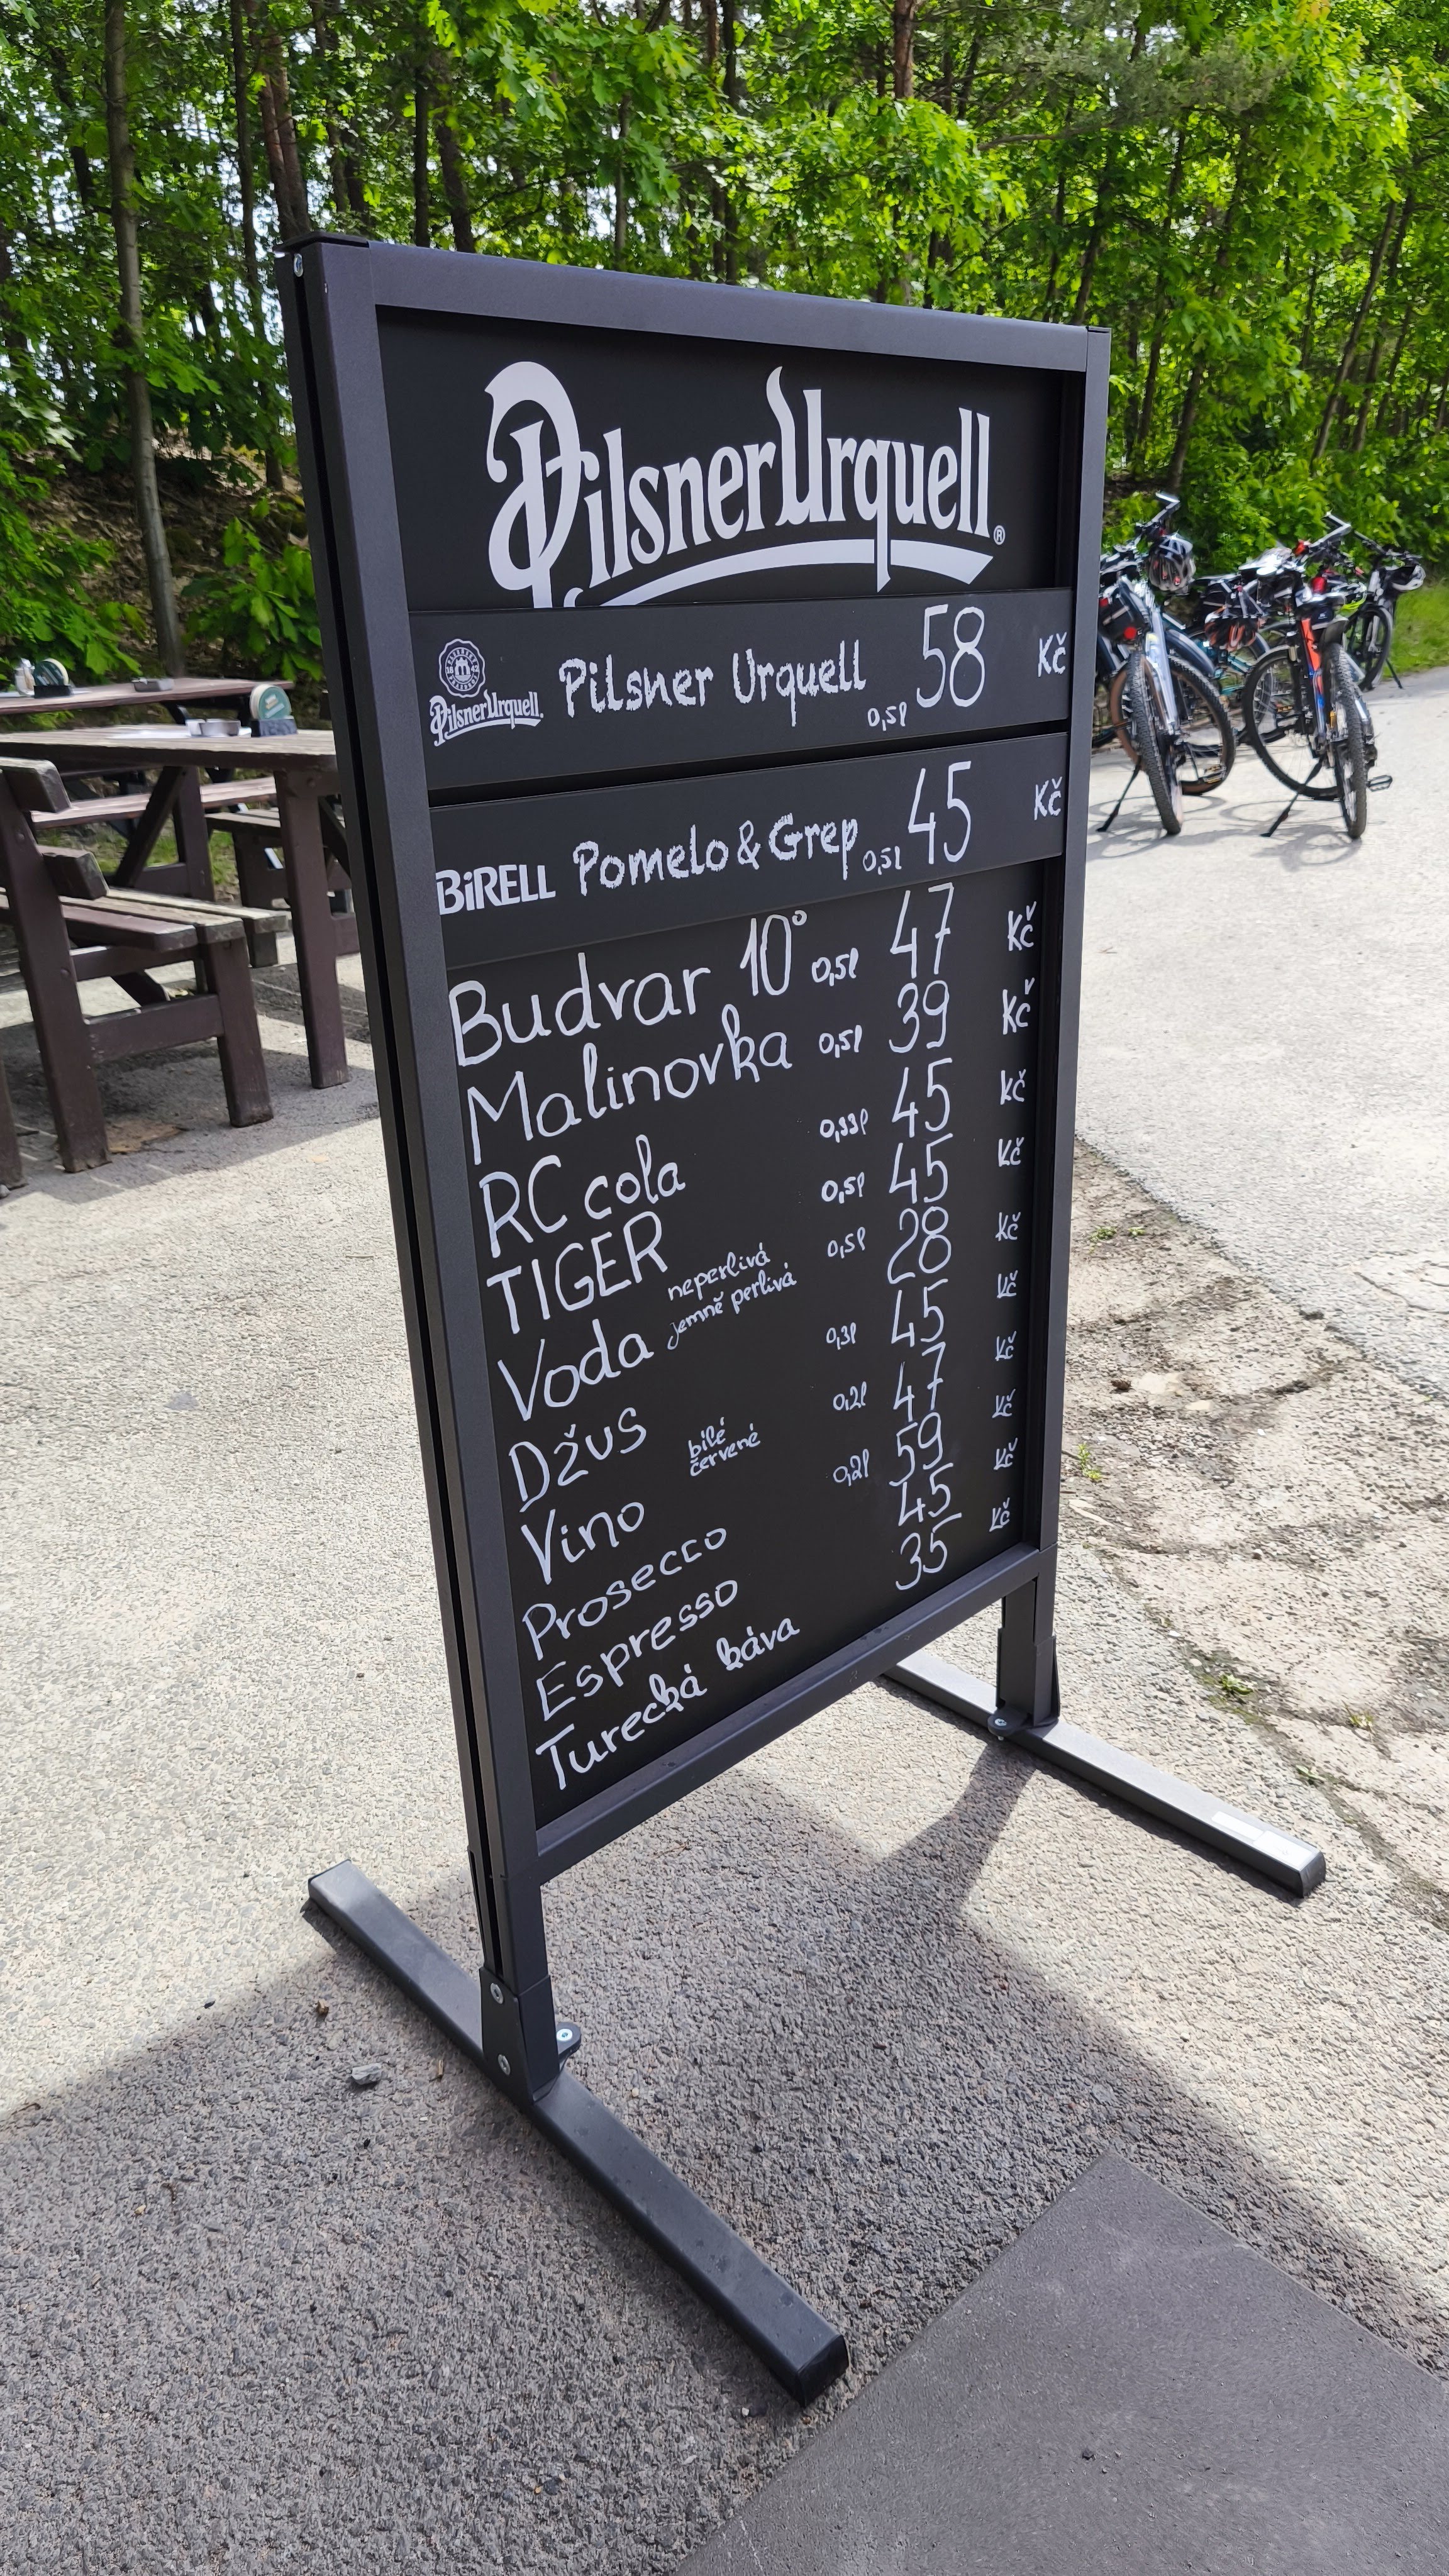 Pilsner Urquell ®
Pilsner Urquell. Pilsner Urquell 0,5l 58 Kč
BiRELL Pomelo & Grep 0,5l 45 Kč
Budvar 10° 0,5l 47 Kč
Malinovka 0,5l 39 Kč
RC cola 0,33l 45 Kč
TIGER 0,5l 45 Kč
Voda neperlivá 0,5l 28 Kč
jemně perlivá
Džus 0,3l 45 Kč
Vino bílé 0,2l 47 Kč
červené
Prosecco 0,2l 59 Kč
Espresso 45 Kč
Turecká káva 35 Kč